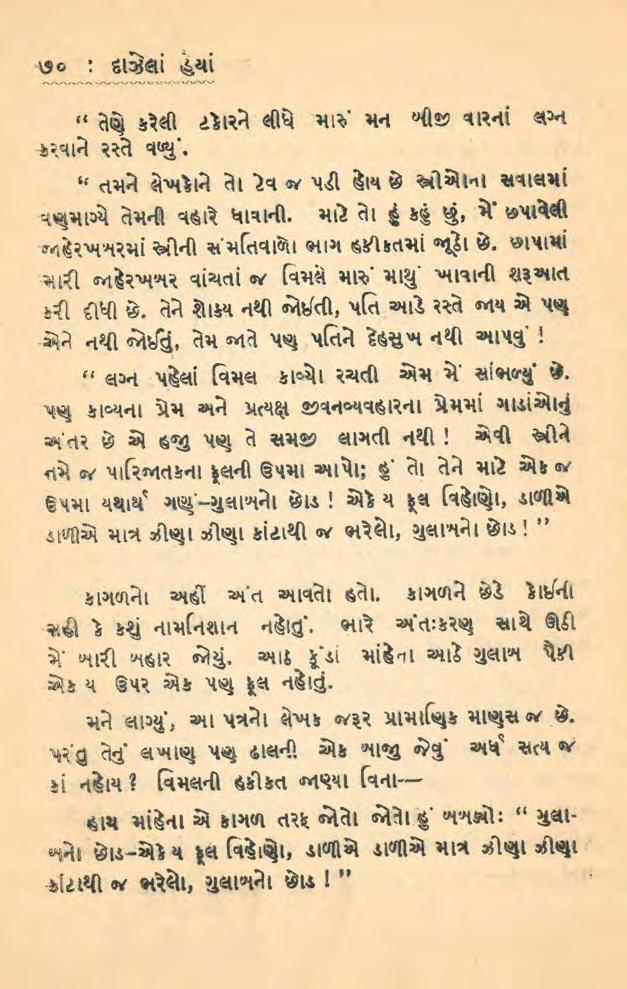 ૭૦ : દાઝેલાં હૈયાં
“ તેણે કરેલી ટકોરને લીધે મારું મન બીજી વારનાં લગ્ન
કરવાને રસ્તે વળ્યું.
“ તમને લેખકોને તો ટેવ જ પડી હોય છે સ્ત્રીઓના સવાલમાં
વણમાગ્યે તેમની વહારે ધાવાની. માટે તો હું કહું છું, મેં છપાવેલી
જાહેરખબરમાં સ્ત્રીની સંમતિવાળો ભાગ હકીકતમાં જૂઠો છે. છાપામાં
મારી જાહેરખબર વાંચતાં જ વિમલે મારું માથું ખાવાની શરૂઆત
કરી દીધી છે. તેને શોક્ય નથી જોઈતી, પતિ આડે રસ્તે જાય એ પણ
એને નથી જોઈતું, તેમ જાતે પણ પતિને દેહસુખ નથી આપવું !
“ લગ્ન પહેલાં વિમલ કાવ્યો રચતી એમ મેં સાંભળ્યું છે.
પણ કાવ્યના પ્રેમ અને પ્રત્યક્ષ જીવનવ્યવહારના પ્રેમમાં ગાડાંઓનું
અંતર છે એ હજી પણ તે સમજી લાગતી નથી ! એવી સ્ત્રીને
તમે જ પારિજાતકના ફૂલની ઉપમા આપો; હું તો તેને માટે એક જ
ઉપમા યથાર્થ ગણું–ગુલાબનો છોડ ! એકે ય ફૂલ વિહોણો, ડાળીએ
ડાળીએ માત્ર ઝીણા ઝીણા કાંટાથી જ ભરેલો, ગુલાબનો છોડ ! ”
કાગળનો અહીં અંત આવતો હતો. કાગળને છેડે કોઈની
સહી કે કશું નામનિશાન નહોતું. ભારે અંતઃકરણ સાથે ઊઠી
મેં બારી બહાર જોયું. આઠ કૂંડાં માંહેના આઠે ગુલાબ પૈકી
એક ય ઉપર એક પણ ફૂલ નહોતું.
મને લાગ્યું, આ પત્રનો લેખક જરૂર પ્રામાણિક માણસ જ છે.
પરંતુ તેનું લખાણ પણ ઢાલની એક બાજુ જેવું અર્ધ સત્ય જ
કાં નહોય ? વિમલની હકીકત જાણ્યા વિના—
હાથ માંહેના એ કાગળ તરફ જોતો જોતો હું બબડ્યો: “ ગુલા-
બનો છોડ–એકે ય ફૂલ વિહોણો, ડાળીએ ડાળીએ માત્ર ઝીણા ઝીણા
કાંટાથી જ ભરેલો, ગુલાબનો છોડ ! ”